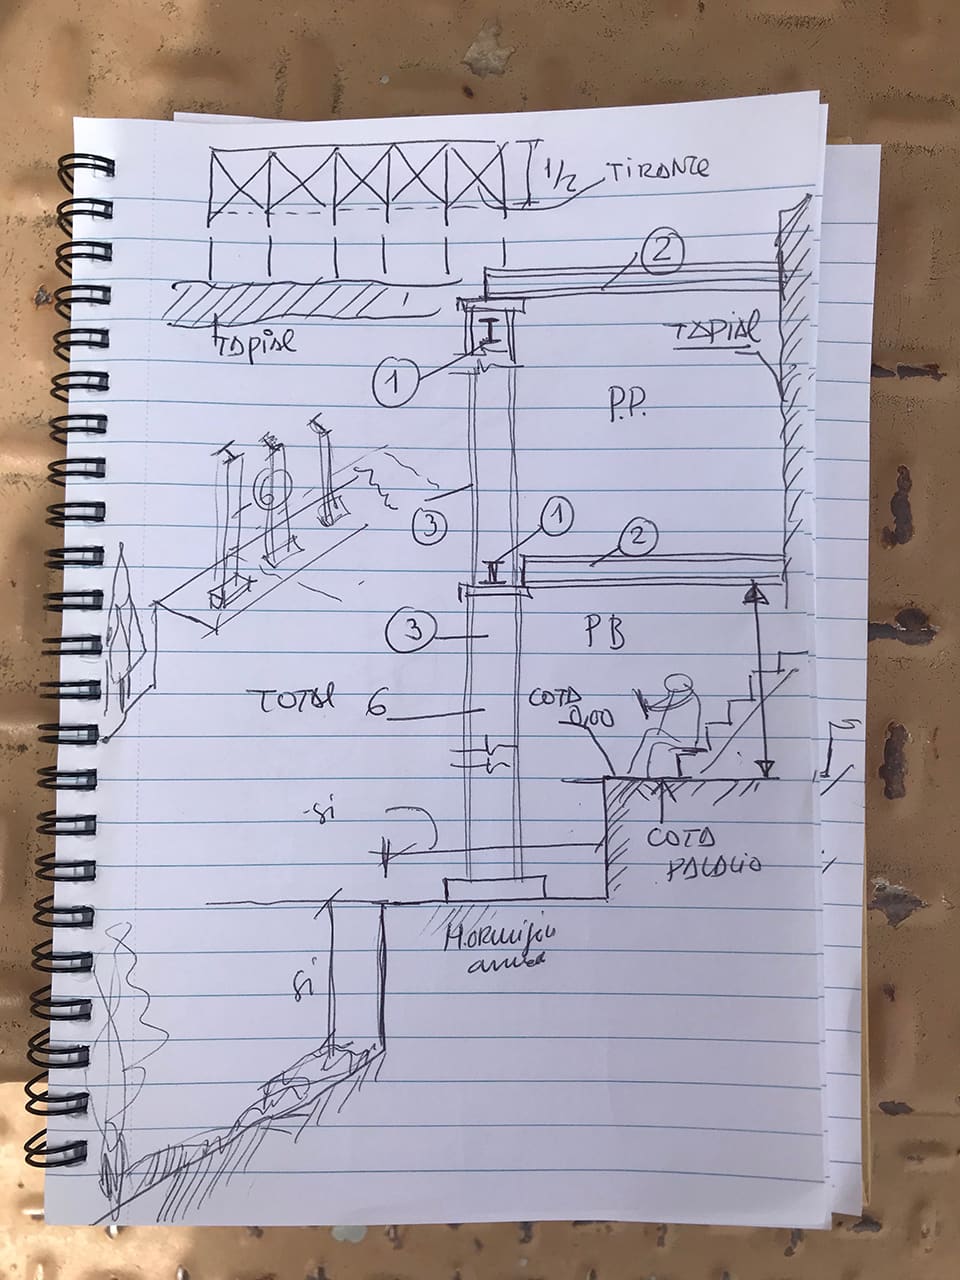 1/2 TIRANTE
2
TAPIAL
TAPIAL
1
P.P.
6
3
1
2
3
PB
TOTAL 6
COTA
0,00
-si
COTA
PALACIO
HORMIGÓN
si